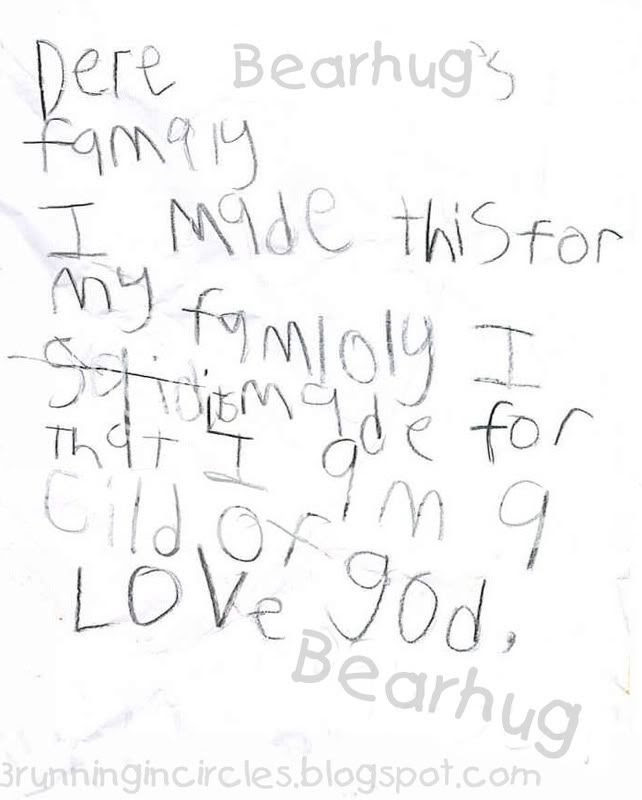 Dere Bearhug's
famaly
I made this for
my famloly I
its made for
that I am a
Cild or
Love god.
Bearhug
3runningincircles.blogspot.com